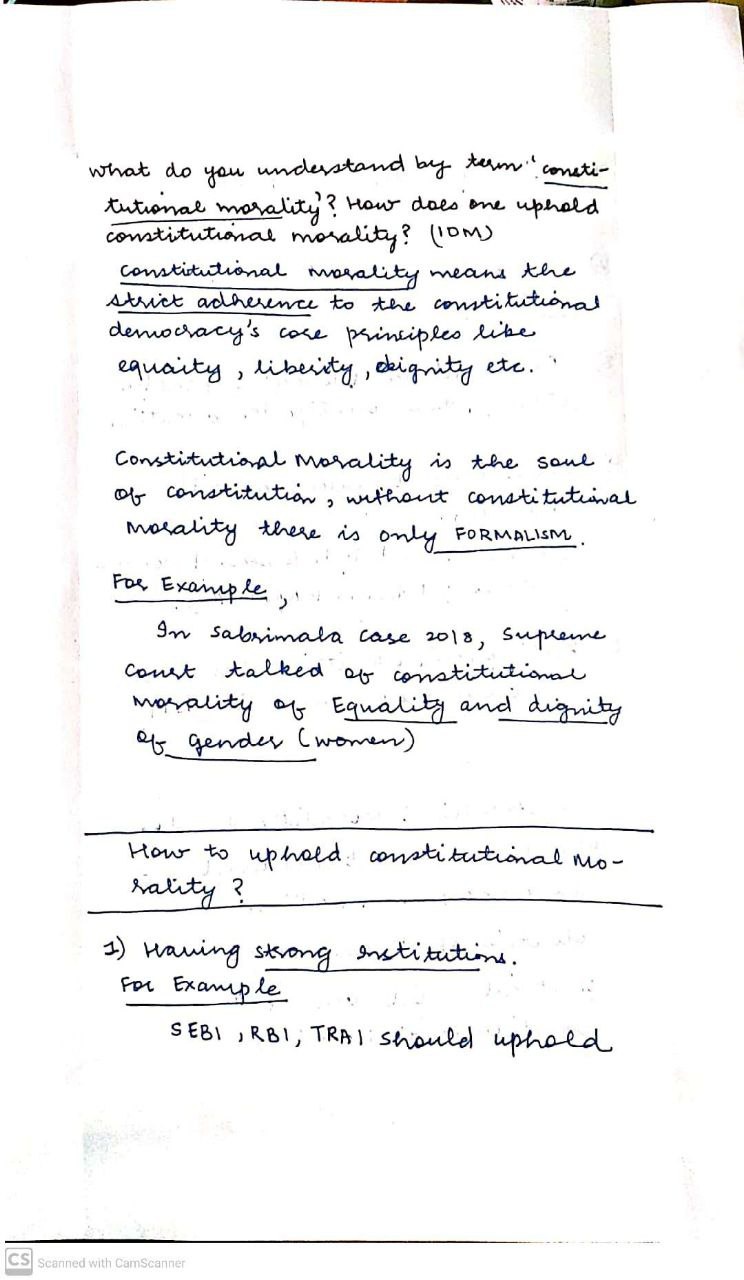 What do you understand by term "consti-
tutional morality"? How does one uphold
constitutional morality? (10M)
Constitutional morality means the
strict adherence to the constitutional
democracy's core principles like
equaity, liberity, dignity etc.
Constitutional Morality is the soul
of constitution, without constitutional
morality there is only FORMALISM.
For Example,
In Sabrimala case 2018, Supreme
Court talked of constitutional
morality of Equality and dignity
of gender (women)
How to uphold constitutional mo-
rality?
1) Having strong institutions.
For Example
SEBI, RBI, TRAI should uphold
CS Scanned with CamScanner